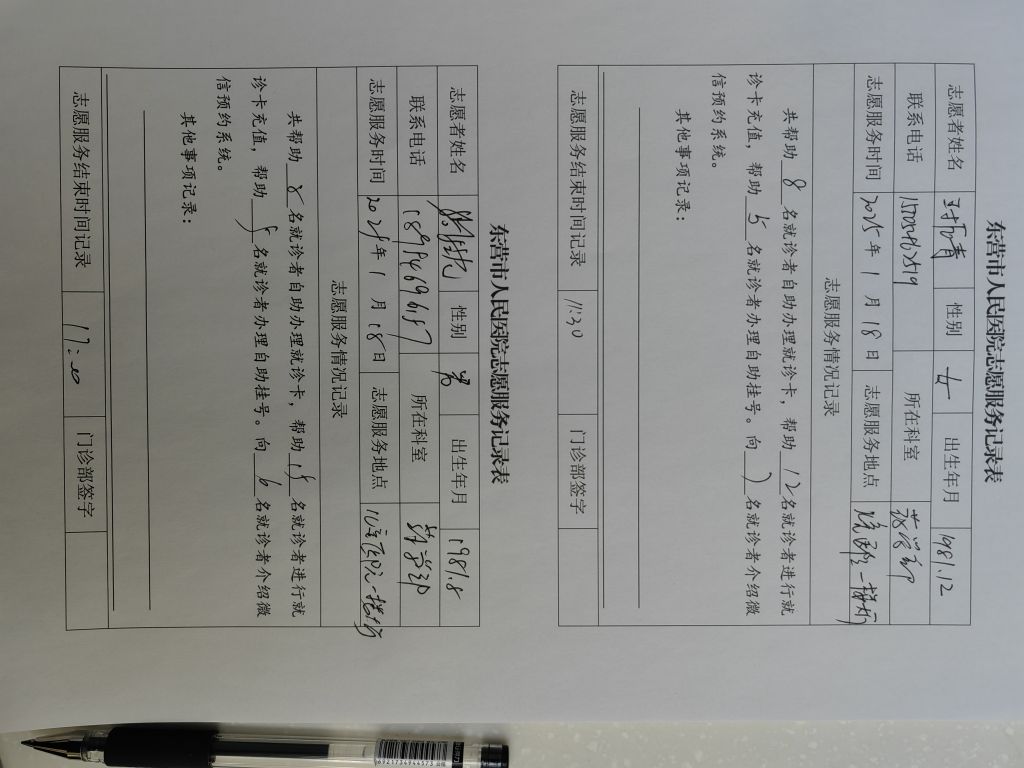 东营市人民医院志愿服务记录表
志愿者姓名 性别 女 出生年月 1981.12
联系电话 所在科室 药学部
志愿服务时间 2025年 1 月 18 日 志愿服务地点
志愿服务情况记录
共帮助 8 名就诊者自助办理就诊卡，帮助 12 名就诊者进行就
诊卡充值，帮助 5 名就诊者办理自助挂号。向 7 名就诊者介绍微
信预约系统。
其他事项记录：
志愿服务结束时间记录 11:30 门诊部签字
东营市人民医院志愿服务记录表
志愿者姓名 性别 男 出生年月 1981.8
联系电话 所在科室 药学部
志愿服务时间 2025年 1 月 18 日 志愿服务地点
志愿服务情况记录
共帮助 8 名就诊者自助办理就诊卡，帮助 15 名就诊者进行就
诊卡充值，帮助 名就诊者办理自助挂号。向 6 名就诊者介绍微
信预约系统。
其他事项记录：
志愿服务结束时间记录 17:00 门诊部签字
6921734944573